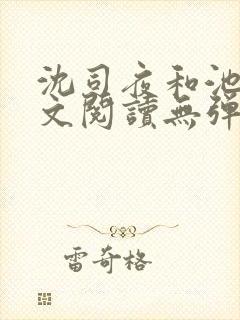 沈司夜和池
文閱讀無彈
雷奇格